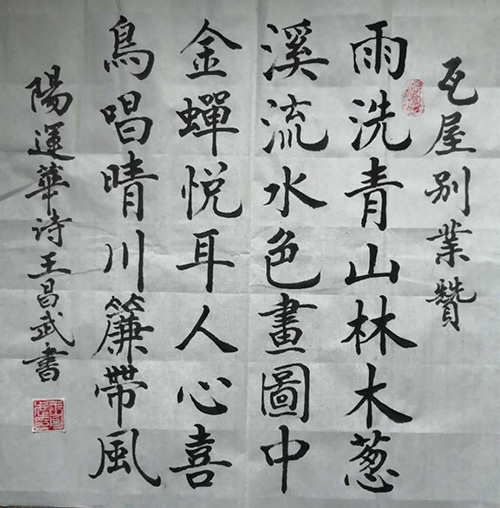 瓦屋别業贊
雨洗青山林木葱
溪流水色畫圖中
金蟬悦耳人心喜
鳥唱晴川簾帶風
陽運華诗王昌武書